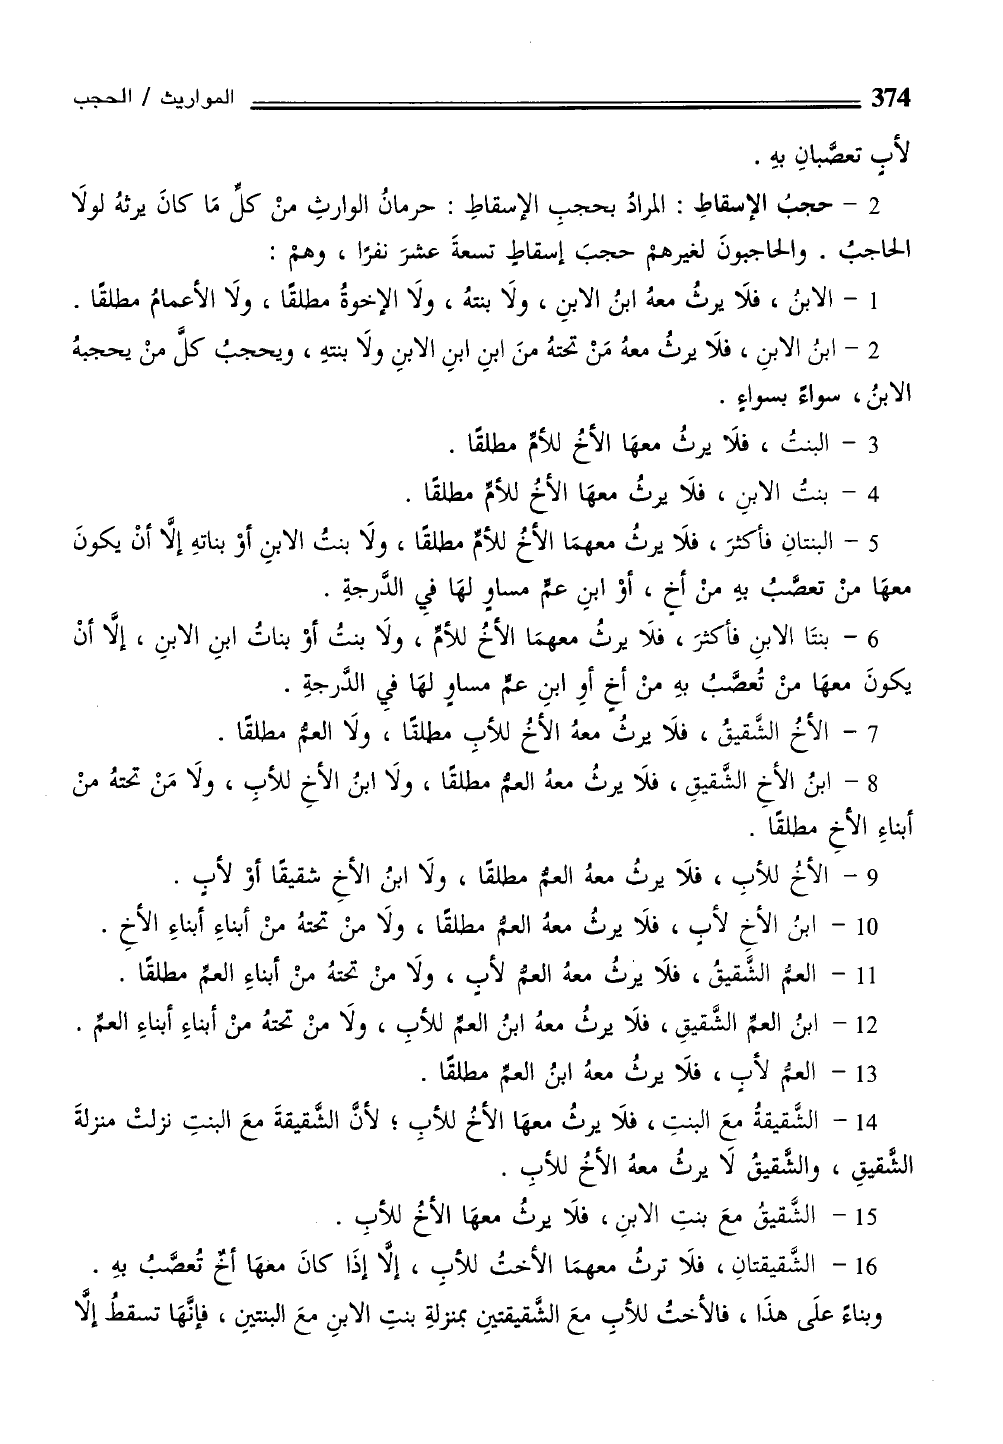 374 المواريث / الحجب
لأبٍ تعصَّبانِ بهِ .
2 - حجبُ الإسقاطِ : المرادُ بحجبِ الإسقاطِ : حرمانُ الوارثِ منْ كلِّ مَا كانَ يرثهُ لولَا
الحاجبُ . والحاجبونَ لغيرهمْ حجبَ إسقاطٍ تسعةَ عشرَ نفرًا ، وهمْ :
1 - الابنُ ، فلَا يرثُ معهُ ابنُ الابنِ ، ولَا بنتهُ ، ولَا الإخوةُ مطلقًا ، ولَا الأعمامُ مطلقًا .
2 - ابنُ الابنِ ، فلَا يرثُ معهُ مَنْ تحتهُ منَ ابنِ ابنِ الابنِ ولَا بنتهِ ، ويحجبُ كلَّ منْ يحجبهُ
الابنُ ، سواءً بسواءٍ .
3 - البنتُ ، فلَا يرثُ معهَا الأخُ للأمِّ مطلقًا .
4 - بنتُ الابنِ ، فلَا يرثُ معهَا الأخُ للأمِّ مطلقًا .
5 - البنتانِ فأكثرَ ، فلَا يرثُ معهمَا الأخُ للأمِّ مطلقًا ، ولَا بنتُ الابنِ أوْ بناتهِ إلَّا أنْ يكونَ
معهَا منْ تعصَّبُ بهِ منْ أخٍ ، أوْ ابنِ عمٍّ مساوٍ لهَا فِي الدَّرجةِ .
6 - بنتَا الابنِ فأكثرَ ، فلَا يرثُ معهمَا الأخُ للأمِّ ، ولَا بنتُ أوْ بناتُ ابنِ الابنِ ، إلَّا أنْ
يكونَ معهَا منْ تُعصَّبُ بهِ منْ أخٍ أوِ ابنِ عمٍّ مساوٍ لهَا فِي الدَّرجةِ .
7 - الأخُ الشَّقيقُ ، فلَا يرثُ معهُ الأخُ للأبِ مطلقًا ، ولَا العمُّ مطلقًا .
8 - ابنُ الأخِ الشَّقيقِ ، فلَا يرثُ معهُ العمُّ مطلقًا ، ولَا ابنُ الأخِ للأبِ ، ولَا مَنْ تحتهُ منْ
أبناءِ الأخِ مطلقًا .
9 - الأخُ للأبِ ، فلَا يرثُ معهُ العمُّ مطلقًا ، ولَا ابنُ الأخِ شقيقًا أوْ لأبٍ .
10 - ابنُ الأخِ لأبٍ ، فلَا يرثُ معهُ العمُّ مطلقًا ، ولَا منْ تحتهُ منْ أبناءِ أبناءِ الأخِ .
11 - العمُّ الشَّقيقُ ، فلَا يرثُ معهُ العمُّ لأبٍ ، ولَا منْ تحتهُ منْ أبناءِ العمِّ مطلقًا .
12 - ابنُ العمِّ الشَّقيقِ ، فلَا يرثُ معهُ ابنُ العمِّ للأبِ ، ولَا منْ تحتهُ منْ أبناءِ أبناءِ العمِّ .
13 - العمُّ لأبٍ ، فلَا يرثُ معهُ ابنُ العمِّ مطلقًا .
14 - الشَّقيقةُ معَ البنتِ ، فلَا يرثُ معهَا الأخُ للأبِ ؛ لأنَّ الشَّقيقةَ معَ البنتِ نزلتْ منزلةَ
الشَّقيقِ ، والشَّقيقُ لَا يرثُ معهُ الأخُ للأبِ .
15 - الشَّقيقُ معَ بنتِ الابنِ ، فلَا يرثُ معهَا الأخُ للأبِ .
16 - الشَّقيقتانِ ، فلَا ترثُ معهمَا الأختُ للأبِ ، إلَّا إذَا كانَ معهَا أخٌ تُعصَّبُ بهِ .
وبناءً علَى هذَا ، فالأختُ للأبِ معَ الشَّقيقتينِ بمنزلةِ بنتِ الابنِ معَ البنتينِ ، فإنَّهَا تسقطُ إلَّا